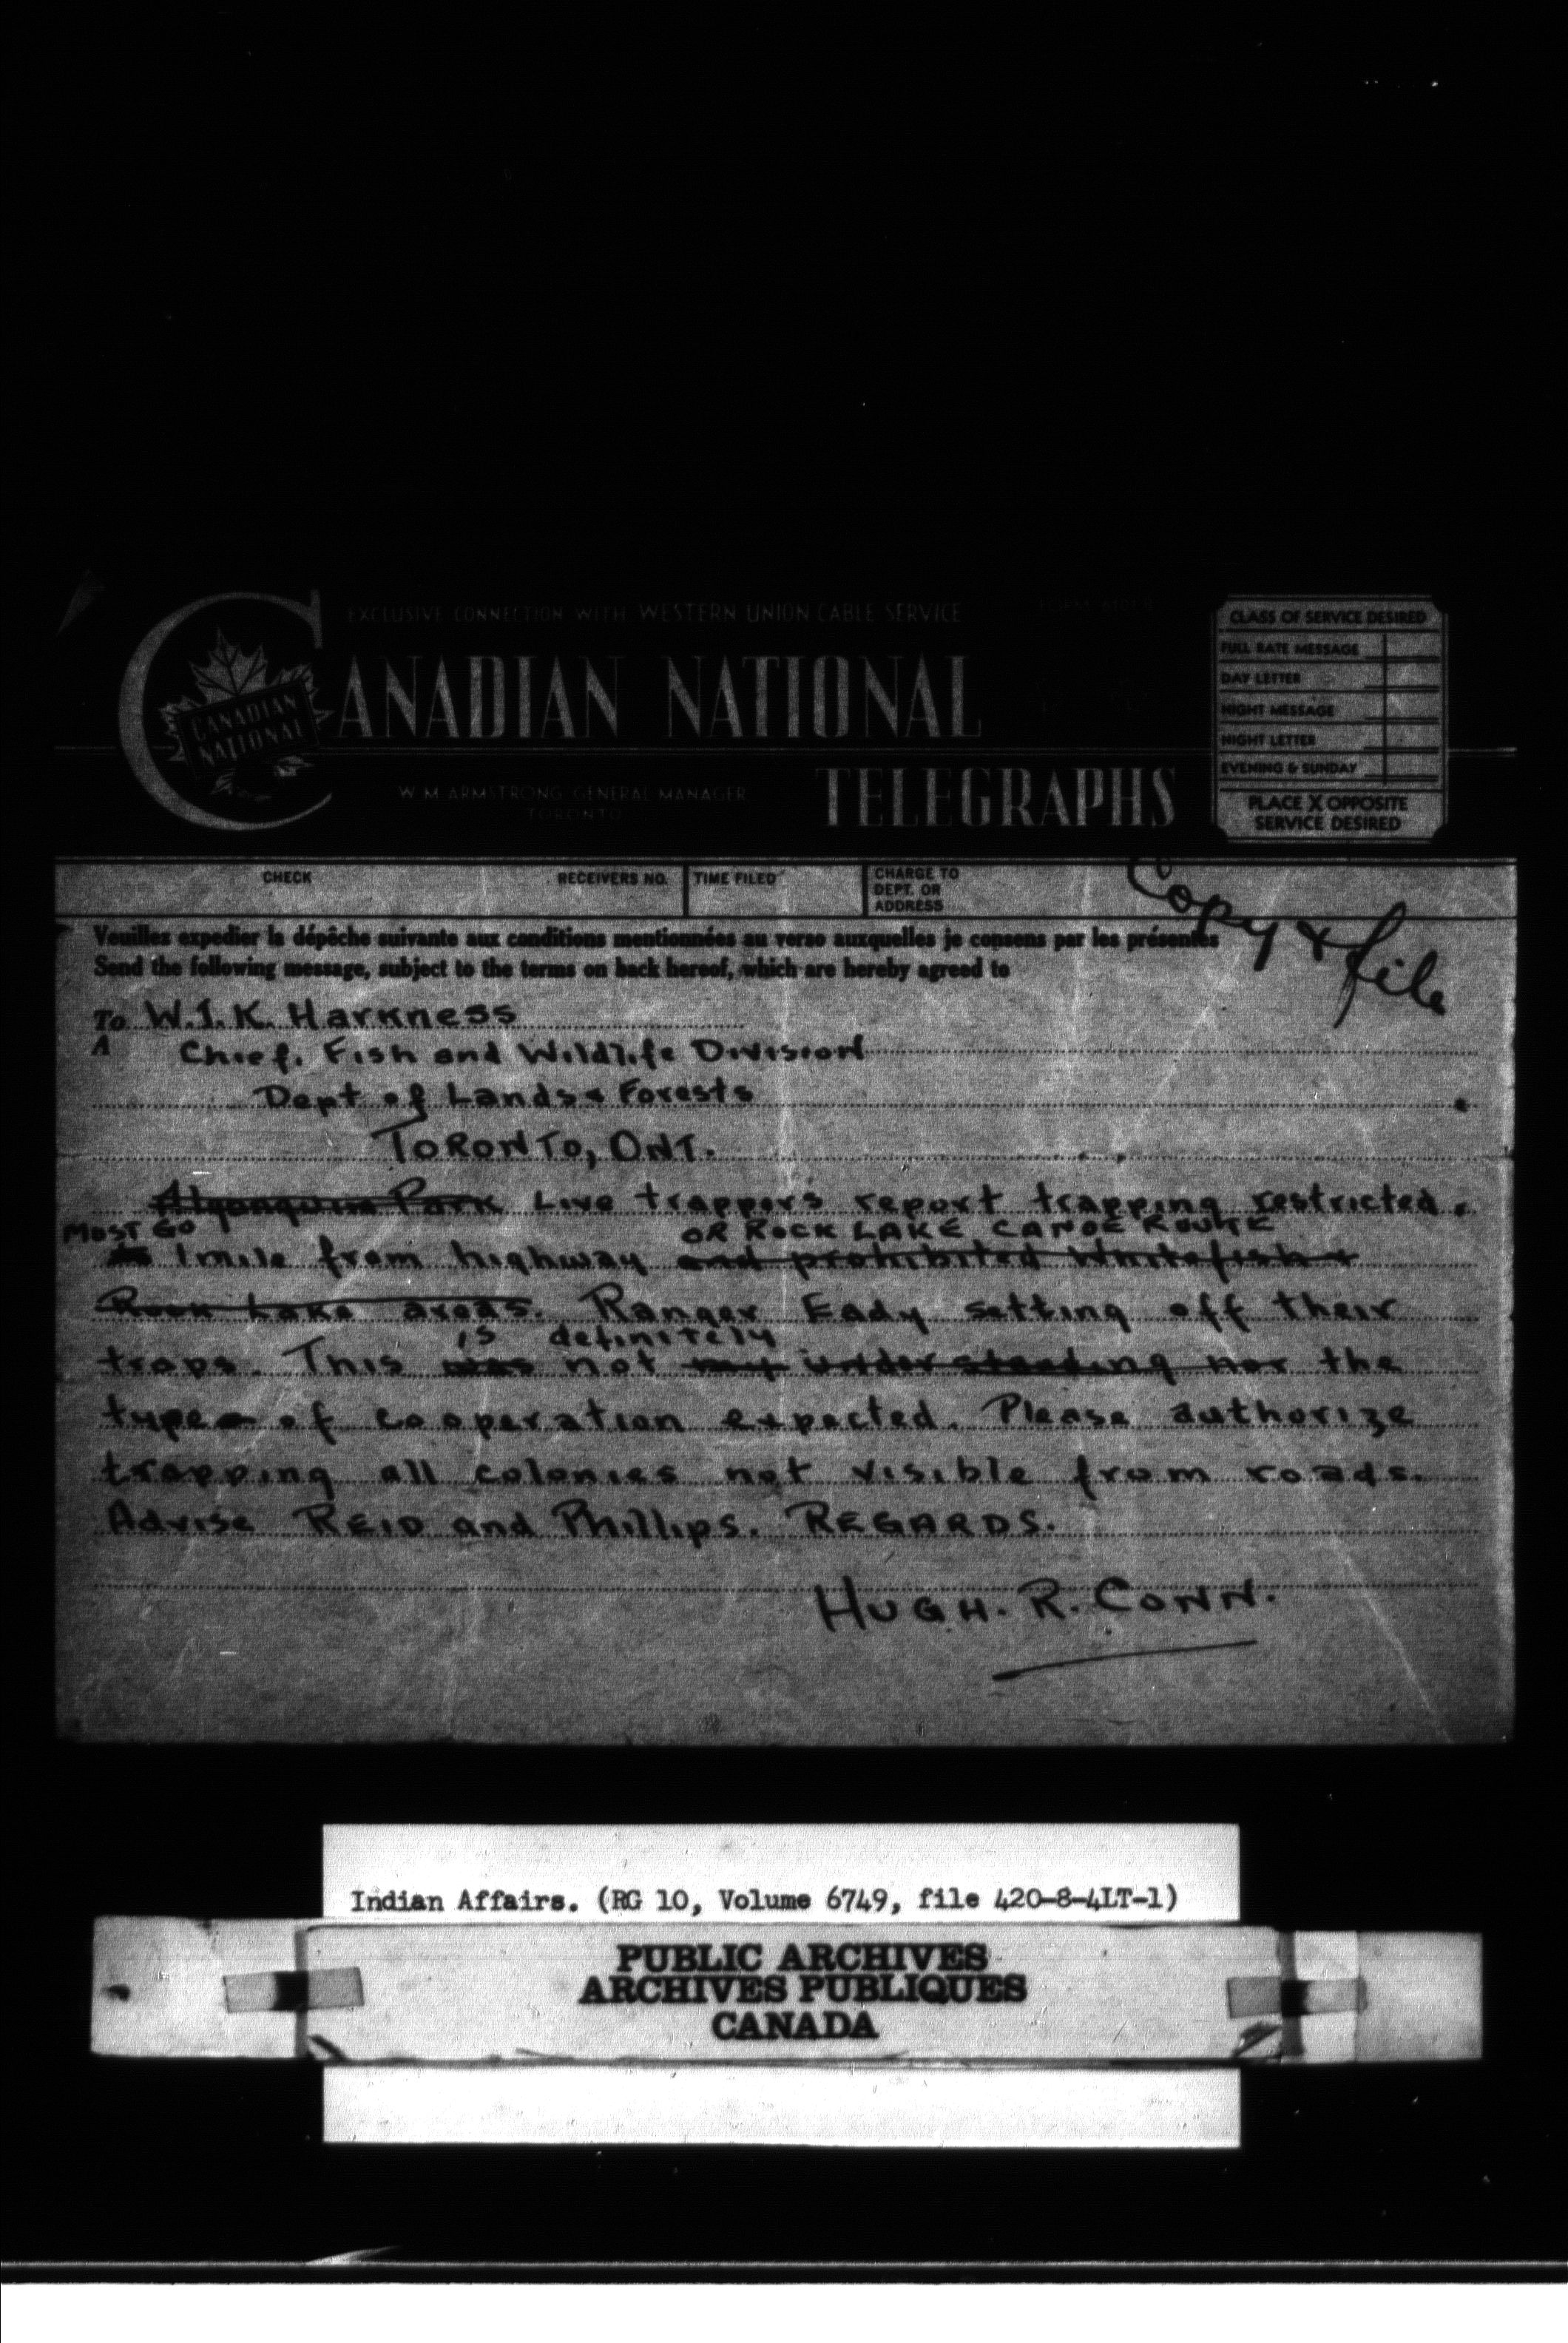 EXCLUSIVE CONNECTION WITH WESTERN UNION CABLE SERVICE
CANADIAN NATIONAL
CANADIAN NATIONAL
TELEGRAPHS
W M ARMSTRONG GENERAL MANAGER
TORONTO
CLASS OF SERVICE DESIRED
FULL RATE MESSAGE
DAY LETTER
NIGHT MESSAGE
NIGHT LETTER
EVENING & SUNDAY
PLACE X OPPOSITE
SERVICE DESIRED
CHECK
RECEIVERS NO.
TIME FILED
CHARGE TO
DEPT. OR
ADDRESS
Copy & file
Veuillez expedier la dépêche suivante aux conditions mentionnées au verso auxquelles je consens par les présentes
Send the following message, subject to the terms on back hereof, which are hereby agreed to
To W.J.K. Harkness
A Chief. Fish and Wildlife Division
Dept of Lands & Forests
TORONTO, ONT.
Algonquin Park Live trappers report trapping restricted.
MOST GO OR ROCK LAKE CANOE ROUTE
1 mile from highway and prohibited Whitefish &
Rock Lake areas. Ranger Eady setting off their
is definitely
traps. This was not my understanding nor the
type of cooperation expected. Please authorize
trapping all colonies not visible from roads.
Advise REID and Phillips. REGARDS.
HUGH. R. CONN.
Indian Affairs. (RG 10, Volume 6749, file 420-8-4LT-1)
PUBLIC ARCHIVES
ARCHIVES PUBLIQUES
CANADA